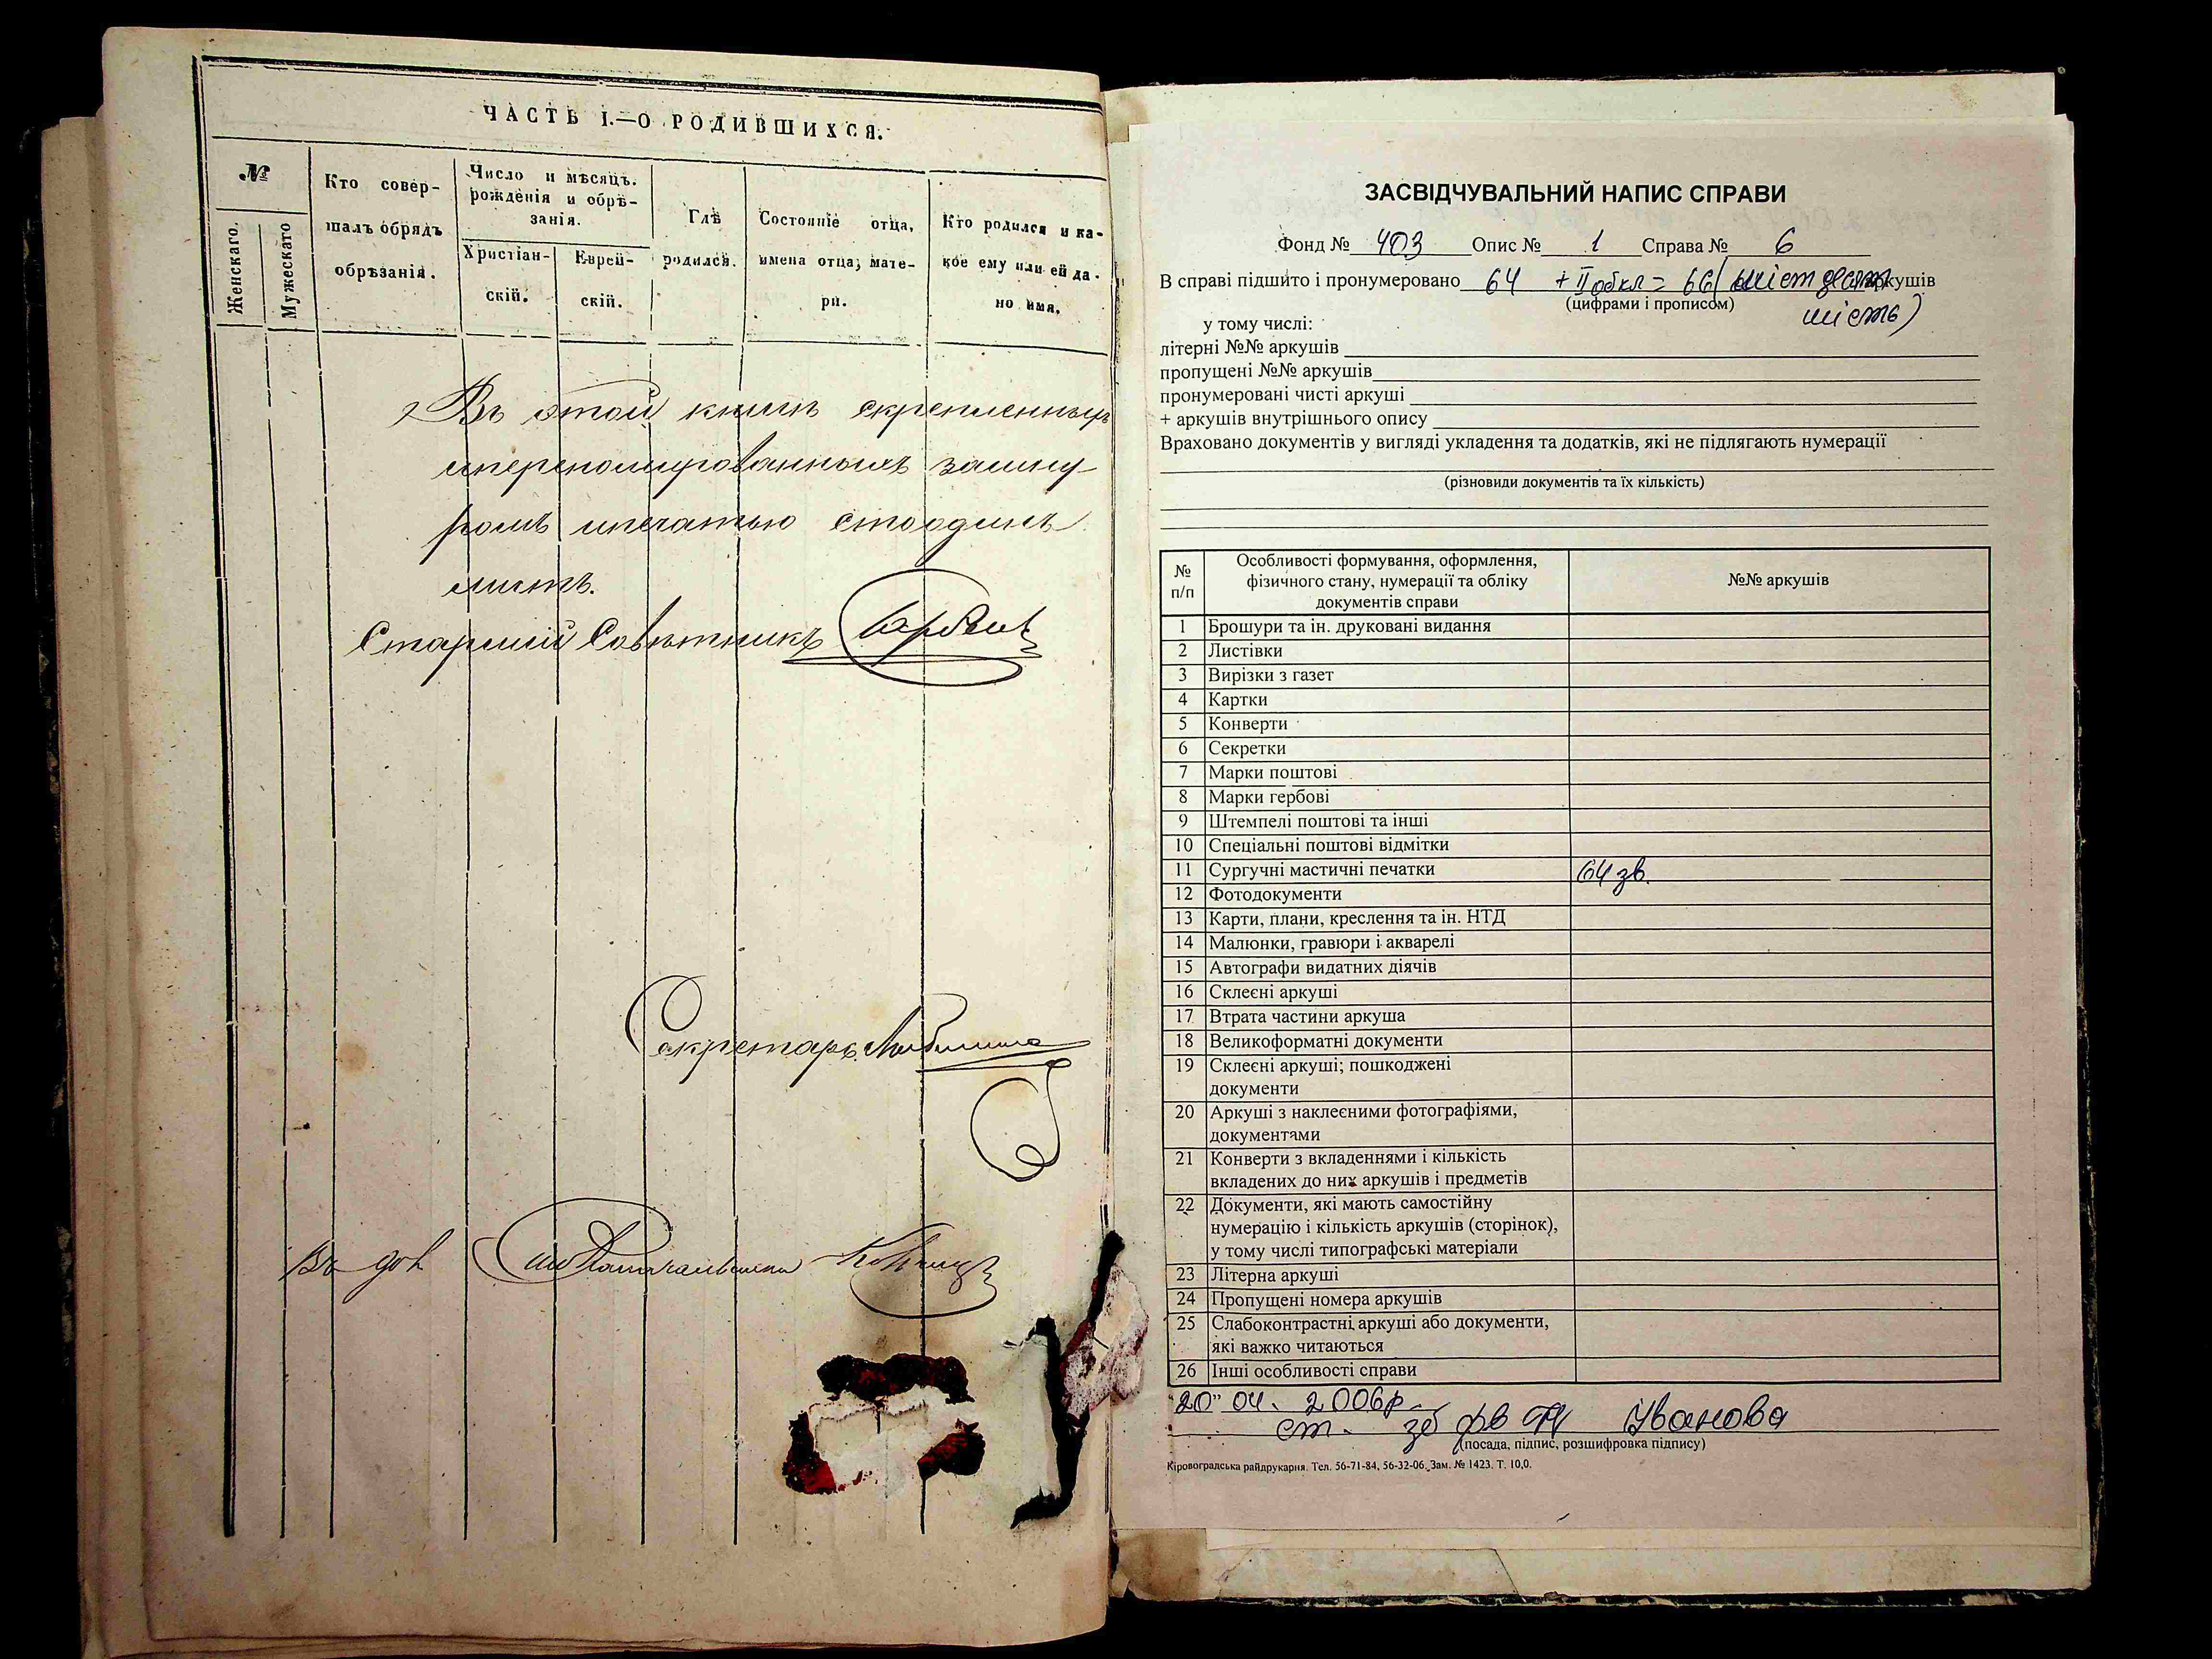 ЧАСТЬ I.—О РОДИВШИХСЯ.
№
Женскаго.
Мужескаго
Кто совер-
шалъ обрядъ
обрѣзанія.
Число и мѣсяцъ.
рожденія и обрѣ-
занія.
Христіан-
скій.
Еврей-
скій.
Гдѣ
родился.
Состояніе отца,
имена отца, мате-
ри.
Кто родился и ка-
кое ему или ей да-
но имя.
Въ этой книгѣ скрепленныхъ
ипереномированныхъ зашну-
ромъ ипечатью стоодинъ
листъ.
Старшій Совѣтникъ
Секретарь
ЗАСВІДЧУВАЛЬНИЙ НАПИС СПРАВИ
Фонд № 403 Опис № 1 Справа № 6
В справі підшито і пронумеровано 64 + II обкл = 66 (шістдесят аркушів
(цифрами і прописом)
шість)
у тому числі:
літерні №№ аркушів
пропущені №№ аркушів
пронумеровані чисті аркуші
+ аркушів внутрішнього опису
Враховано документів у вигляді укладення та додатків, які не підлягають нумерації
(різновиди документів та їх кількість)
№ п/п
Особливості формування, оформлення,
фізичного стану, нумерації та обліку
документів справи
№№ аркушів
1 Брошури та ін. друковані видання
2 Листівки
3 Вирізки з газет
4 Картки
5 Конверти
6 Секретки
7 Марки поштові
8 Марки гербові
9 Штемпелі поштові та інші
10 Спеціальні поштові відмітки
11 Сургучні мастичні печатки 64 зв.
12 Фотодокументи
13 Карти, плани, креслення та ін. НТД
14 Малюнки, гравюри і акварелі
15 Автографи видатних діячів
16 Склеєні аркуші
17 Втрата частини аркуша
18 Великоформатні документи
19 Склеєні аркуші; пошкоджені
документи
20 Аркуші з наклеєними фотографіями,
документами
21 Конверти з вкладеннями і кількість
вкладених до них аркушів і предметів
22 Документи, які мають самостійну
нумерацію і кількість аркушів (сторінок),
у тому числі типографські матеріали
23 Літерна аркуші
24 Пропущені номера аркушів
25 Слабоконтрастні аркуші або документи,
які важко читаються
26 Інші особливості справи
"20" 04. 2006р.
ст. зб фв Іванова
(посада, підпис, розшифровка підпису)
Кіровоградська райдрукарня. Тел. 56-71-84, 56-32-06. Зам. № 1423. Т. 10,0.